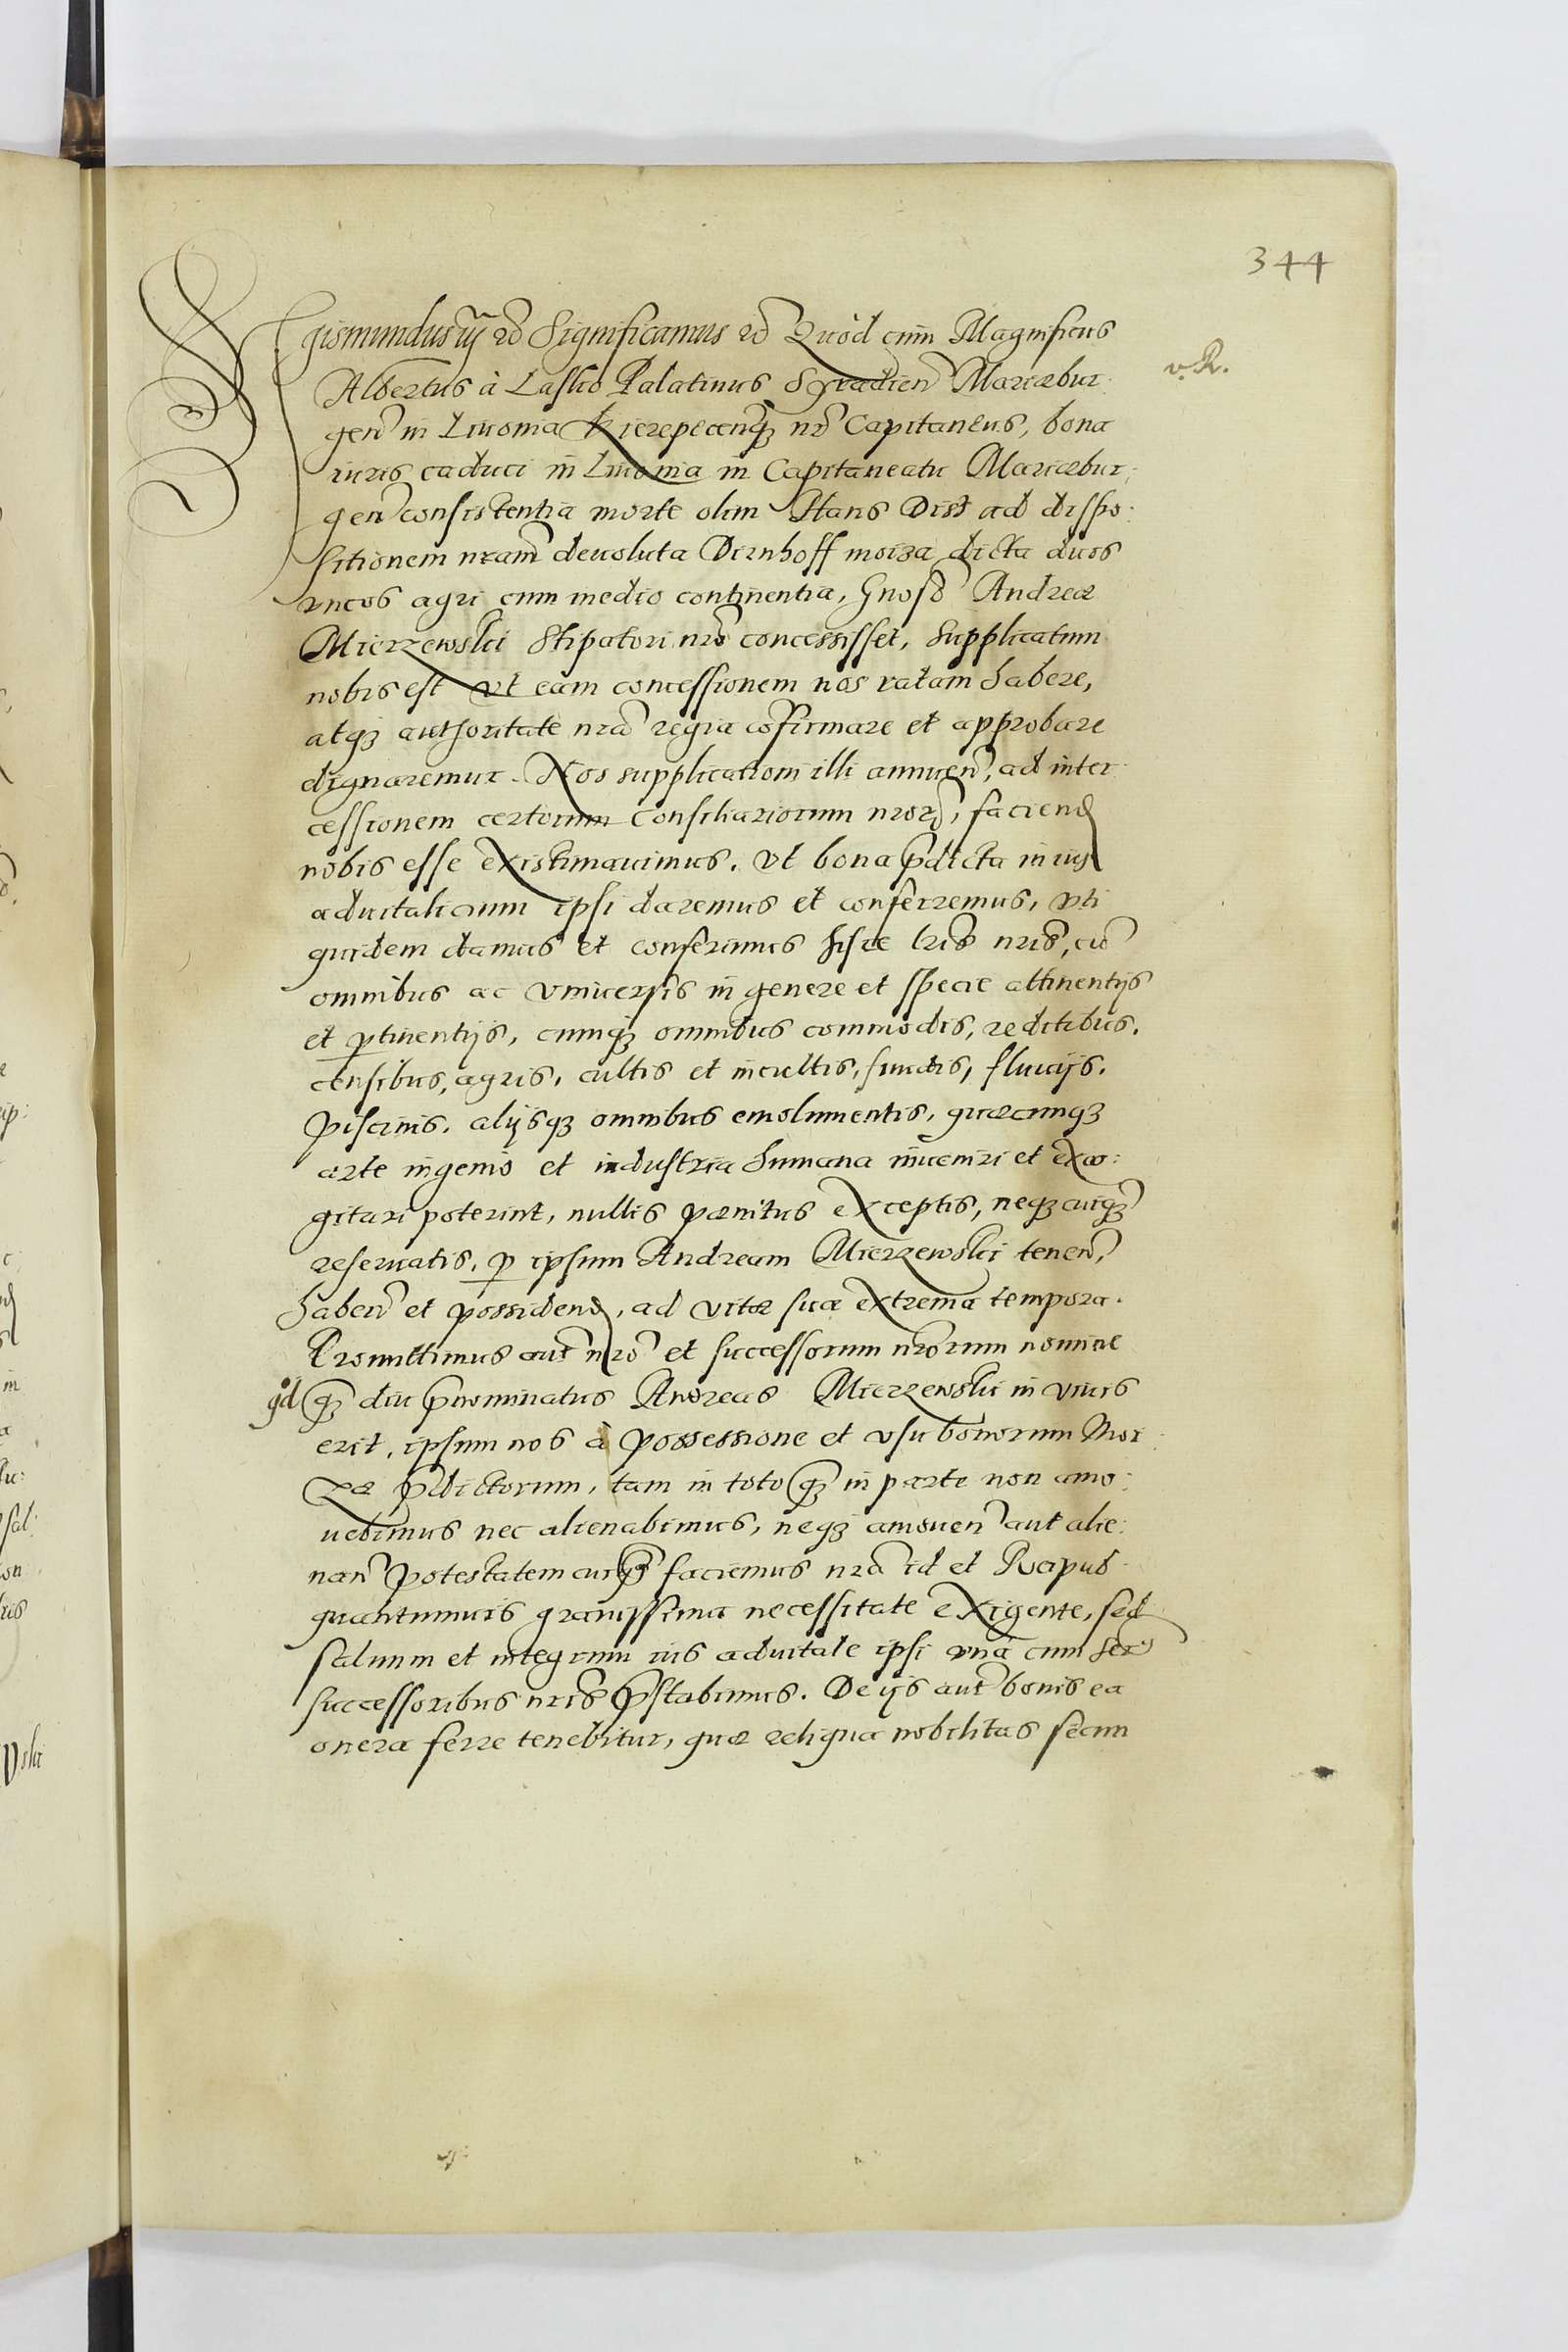 344
Sigismundus iij etc Significamus etc Quòd cum Magnificus
v. R.
Albertus à Lasko Palatinus Syradien Mariæbur:
gen in Livonia Kierepecenq3 nr Capitaneus, bona
iuris caduci in Livonia in Capitaneatu Mariæbur:
gen consistentia morte olim Hans Dist ad dispo:
sitionem nram devoluta Dirnhoff moiza dicta duos
vncos agri cum medio continentia, Gnoso Andreæ
Mierzewski Stipatori nro concessisset, supplicatum
nobis est vt eam concessionem nos ratam habere,
atq3 authoritate nra regia cofirmare et approbare
dignaremur. Nos supplicationi illi annuen, ad inter:
cessionem certorum Consiliariorum nror, faciend
nobis esse existimavimus. Vt bona pdicta in ius
advitalicium ipsi daremus et conferremus, vti
quidem damus et conferimus hisce lris nris, cu
omnibus ac vniuersis in genere et specie attinentijs
et ptinentijs, cumq3 omnibus commodis, reditibus.
censibus, agris, cultis et incultis, fundis, fluuijs.
piscinis, alijsq3 omnibus emolumentis, quæcunq3
arte ingenio et industria humana inueniri et exco:
gitari poterint, nullis pœnitus exceptis, neq3 cuiq3
reseruatis, p ipsum Andream Mierzewski tenen,
haben et possidend, ad vitæ suæ extrema tempora.
Promittimus aut nro et successorum nrorum nomine
qd q3 diu pnominatus Andreas Mierzewski in viuis
erit, ipsum nos à possessione et vsu bonorum Moi
zæ pdictorum, tam in toto q3 in parte non amo:
uebimus nec alienabimus, neq3 amouen aut alie:
nan potestatem cuiq3 faciemus nra id et Reipub:
quantumuis grauissima necessitate exigente, sed
saluum et integrum ius aduitale ipsi vnà cum Ser
successoribus nris pstabimus. De ijs aut bonis ea
onera ferre tenebitur, quæ reliqua nobilitas secun